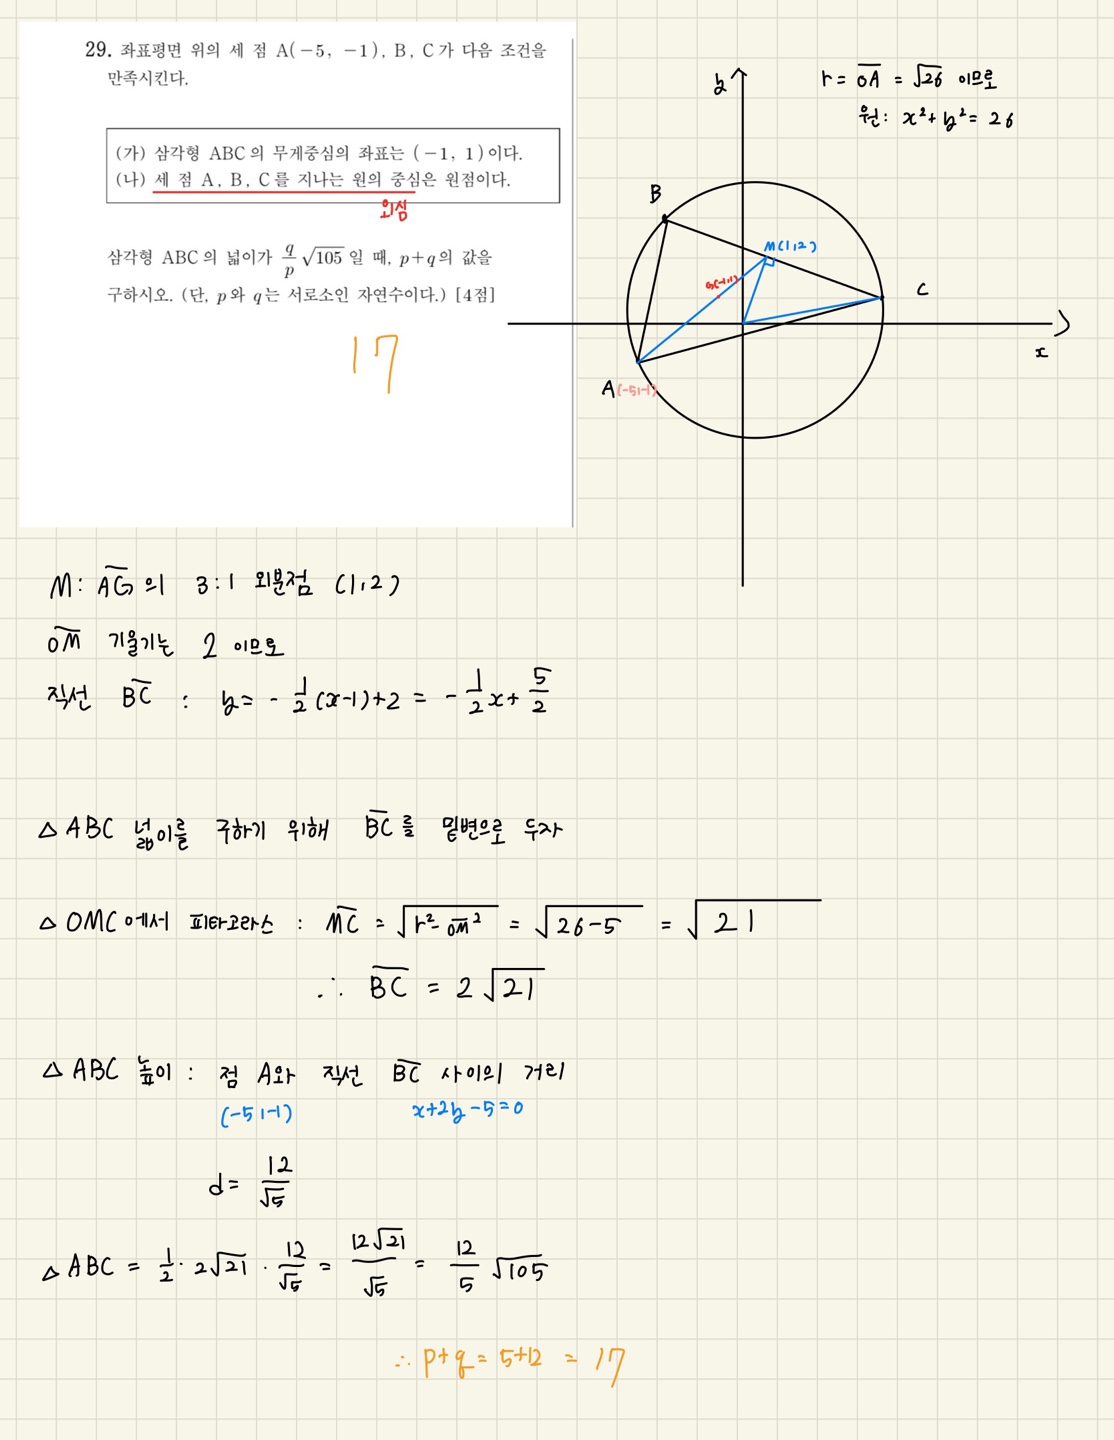 29. 좌표평면 위의 세 점 A(−5, −1), B, C가 다음 조건을
만족시킨다.
(가) 삼각형 ABC의 무게중심의 좌표는 (−1, 1)이다.
(나) 세 점 A, B, C를 지나는 원의 중심은 원점이다.
외심
삼각형 ABC의 넓이가 q/p √105 일 때, p+q의 값을
구하시오. (단, p와 q는 서로소인 자연수이다.) [4점]
17
r = OA = √26 이므로
원: x²+y² = 26
y
B
M(1,2)
G(-1,1)
C
x
A(-5,-1)
M: AG의 3:1 외분점 (1,2)
OM 기울기는 2 이므로
직선 BC : y = -1/2(x-1)+2 = -1/2x + 5/2
△ABC 넓이를 구하기 위해 BC를 밑변으로 두자
△OMC에서 피타고라스 : MC = √(r²-OM²) = √(26-5) = √21
∴ BC = 2√21
△ABC 높이 : 점 A와 직선 BC 사이의 거리
(-5,-1) x+2y-5=0
d = 12/√5
△ABC = 1/2 · 2√21 · 12/√5 = 12√21/√5 = 12/5 √105
∴ p+q = 5+12 = 17